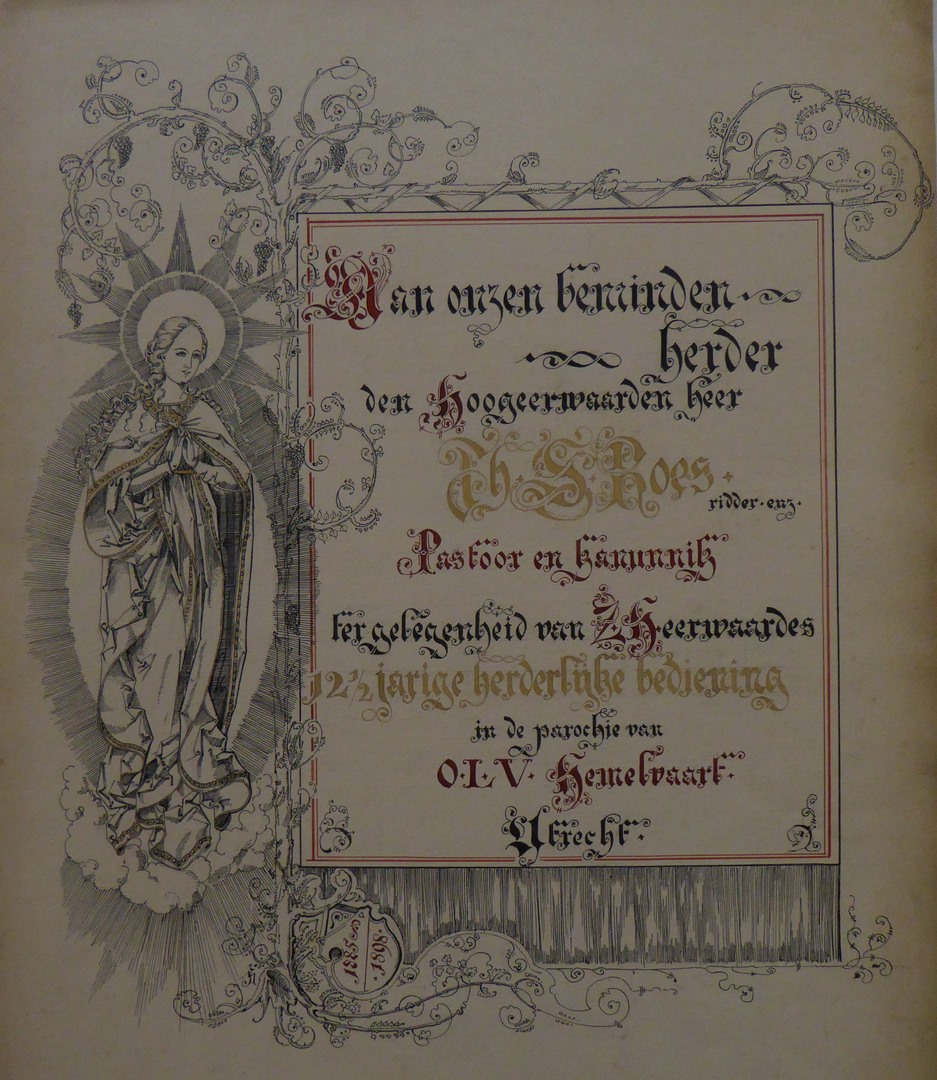 Aan onzen beminden
herder
den Hoogeerwaarden heer
Th. S. Roes.
ridder. enz.
Pastoor en kanunnik
ter gelegenheid van Z.H.eerwaardes
12½ jarige herderlijke bediening
in de parochie van
O.L.V. Hemelvaart.
Utrecht.
1885
1898.